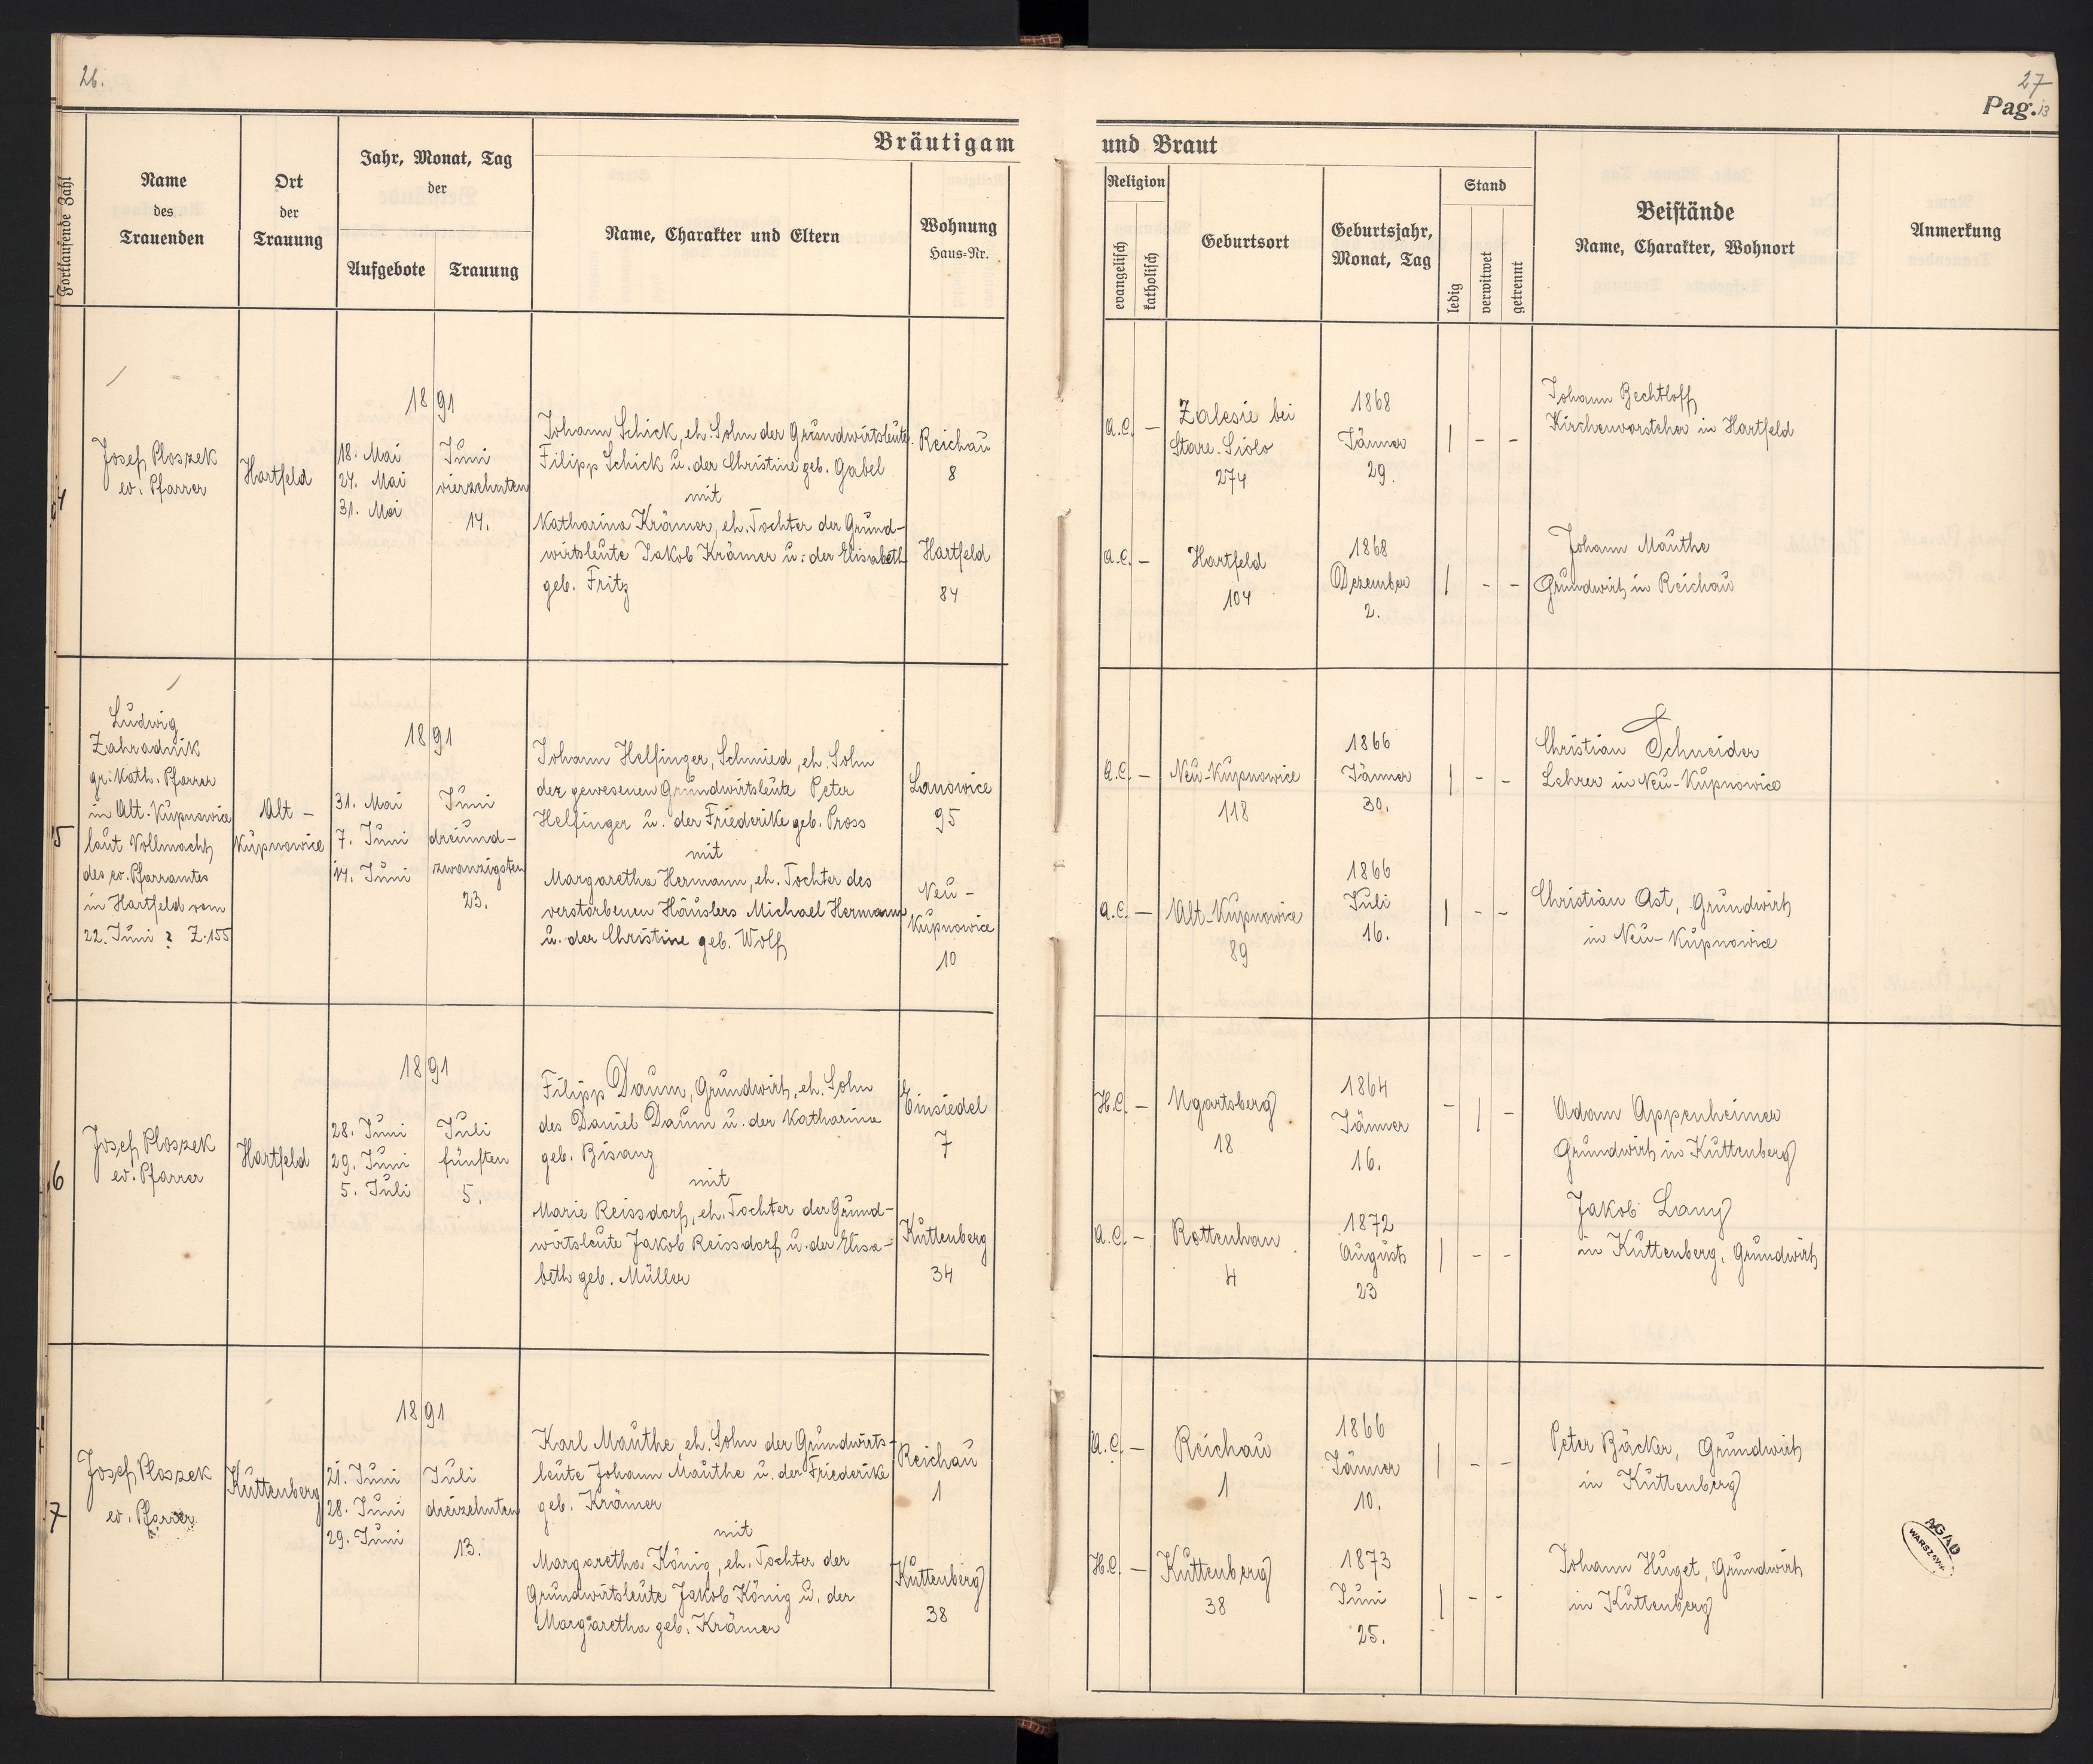 26.
27
Pag. 13
Bräutigam
und Braut
Fortlaufende Zahl
Name
des
Trauenden
Ort
der
Trauung
Jahr, Monat, Tag
der
Aufgebote
Trauung
Name, Charakter und Eltern
Wohnung
Haus=Nr.
Religion
evangelisch
katholisch
Geburtsort
Geburtsjahr,
Monat, Tag
Stand
ledig
verwitwet
getrennt
Beistände
Name, Charakter, Wohnort
Anmerkung
4
Josef Ploszek
ev. Pfarrer
Hartfeld
1891
18. Mai
24. Mai
31. Mai
Juni
vierzehnten
14.
Johann Schick, eh. Sohn der Grundwirtsleute
Filipp Schick u. der Christine geb. Gabel
mit
Katharina Krämer, eh. Tochter der Grund-
wirtsleute Jakob Krämer u. der Elisabeth
geb. Fritz
Reichau
8
Hartfeld
84
A.C. –
Zalesie bei
Stare-Siolo
274
1868
Jänner
29.
| – –
Johann Bechtloff
Kirchenvorsteher in Hartfeld
A.C. –
Hartfeld
104
1868
Dezember
2.
| – –
Johann Mauthe
Grundwirt in Reichau
5
Ludwig
Zahradnik
gr. Kath. Pfarrer
in Alt-Kupnowice
laut Vollmacht
des ev. Pfarramtes
in Hartfeld vom
22. Juni Z. 155
Alt-
Kupnowice
1891
31. Mai
7. Juni
14. Juni
Juni
dreiund-
zwanzigsten
23.
Johann Helfinger, Schmied, eh. Sohn
der gewesenen Grundwirtsleute Peter
Helfinger u. der Friederike geb. Pross
mit
Margaretha Hermann, eh. Tochter des
verstorbenen Häuslers Michael Hermann
u. der Christine geb. Wolf
Lanowice
95
Neu-
Kupnowice
10
A.C. –
Neu-Kupnowice
118
1866
Jänner
30.
| – –
Christian Schneider
Lehrer in Neu-Kupnowice
A.C. –
Alt-Kupnowice
89
1866
Juli
16.
| – –
Christian Ast, Grundwirt
in Neu-Kupnowice
6
Josef Ploszek
ev. Pfarrer
Hartfeld
1891
28. Juni
29. Juni
5. Juli
Juli
fünften
5.
Filipp Daum, Grundwirt, eh. Sohn
des Daniel Daum u. der Katharina
geb. Bisanz
mit
Marie Reissdorf, eh. Tochter der Grund-
wirtsleute Jakob Reissdorf u. der Elisa-
beth geb. Müller
Einsiedel
7
Kuttenberg
34
H.C. –
Ugartsberg
18
1864
Jänner
16.
– | –
Adam Appenheimer
Grundwirt in Kuttenberg
A.C. –
Rottenhan
4
1872
August
23
| – –
Jakob Lang
in Kuttenberg, Grundwirt
7
Josef Ploszek
ev. Pfarrer
Kuttenberg
1891
21. Juni
28. Juni
29. Juni
Juli
dreizehnten
13.
Karl Mauthe, eh. Sohn der Grundwirts-
leute Johann Mauthe u. der Friederike
geb. Krämer
mit
Margaretha König, eh. Tochter der
Grundwirtsleute Jakob König u. der
Margaretha geb. Krämer
Reichau
1
Kuttenberg
38
A.C. –
Reichau
1
1866
Jänner
10.
| – –
Peter Bäcker, Grundwirt
in Kuttenberg
H.C. –
Kuttenberg
38
1873
Juni
25.
| – –
Johann Huget, Grundwirt
in Kuttenberg
AGAD
WARSZAWA